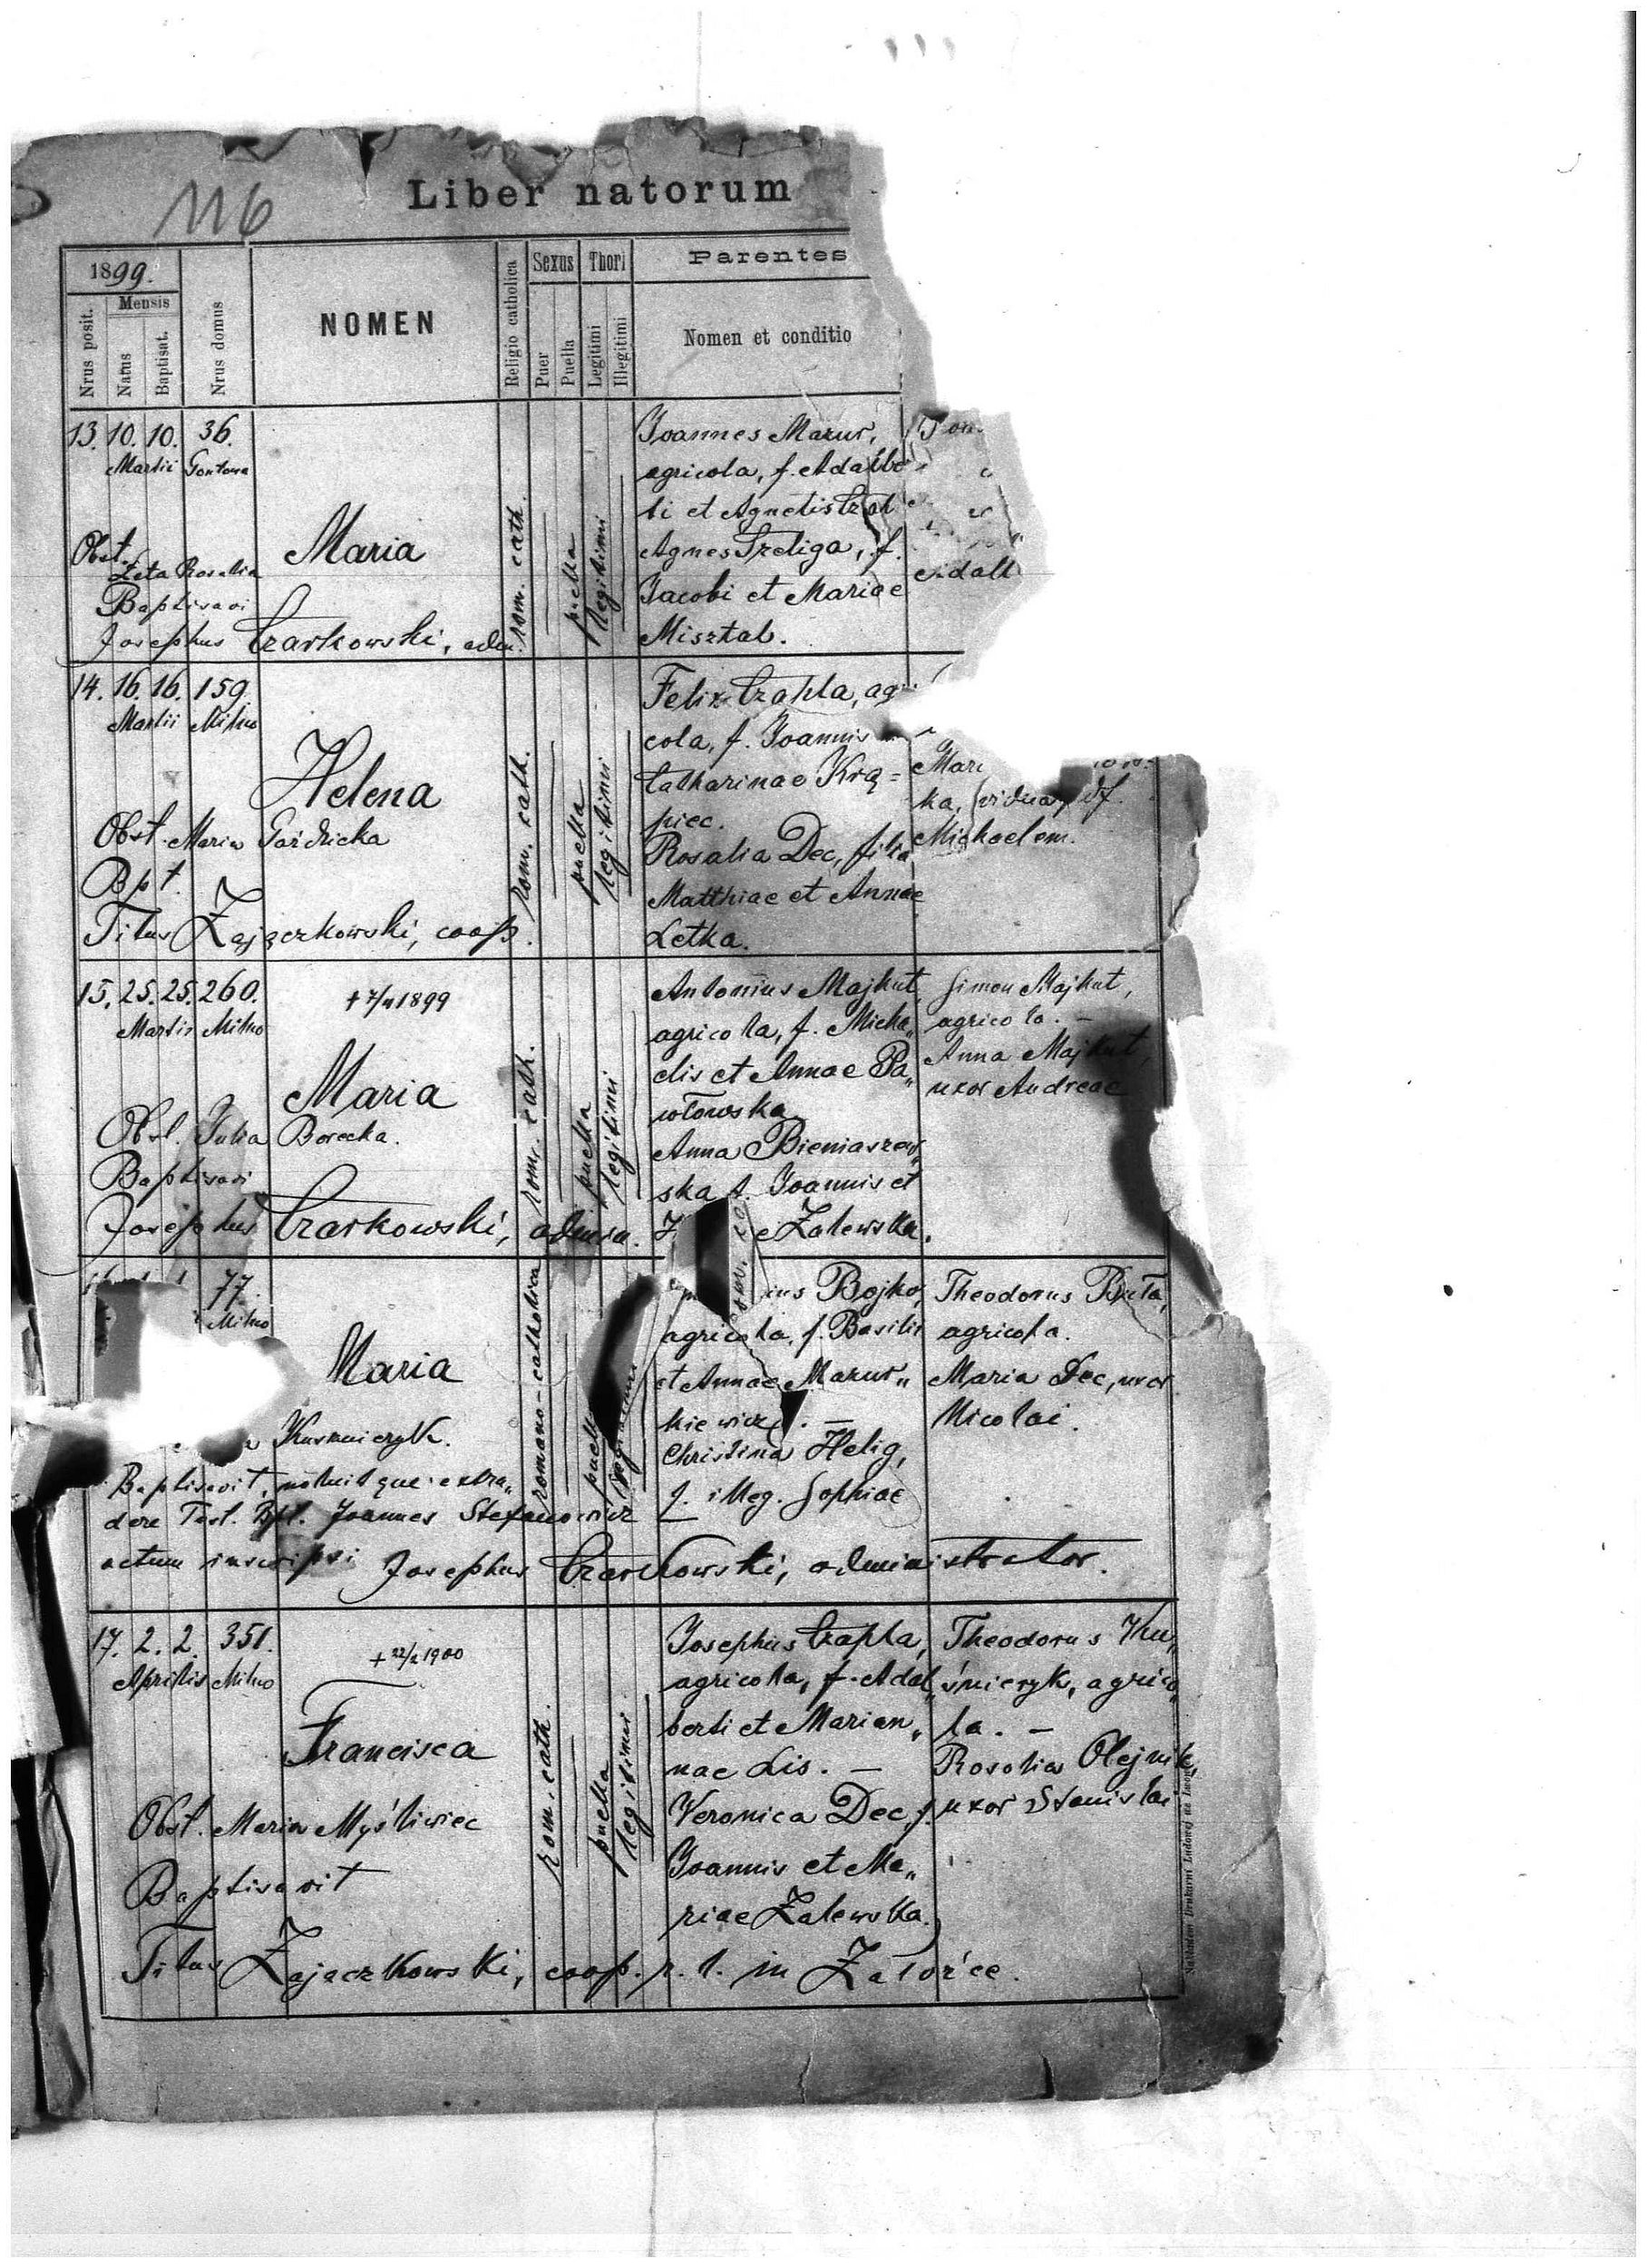 116
Liber natorum
1899.
Nrus posit.
Mensis
Natus
Baptisat.
Nrus domus
NOMEN
Religio catholica
Sexus
Puer
Puella
Thori
Legitimi
Illegitimi
Parentes
Nomen et conditio
13. 10. 10. 36.
Martii
Maria
Obst.
Rosalia
Baptisavi
Josephus Czarkowski, adm.
rom. cath.
puella
legitimi
Joannes Mazur,
agricola, f. Adalbe
ti et Agnetis
Agnes Treliga, f.
Jacobi et Mariae
Misztal.
14. 16. 16. 159.
Martii Milno
Helena
Obst. Maria
Bpt.
Titus Zajączkowski, coop.
rom. cath.
puella
legitimi
Felix Czapla, agri
cola, f. Joannis
Catharinae Krą=
piec.
Rosalia Dec, filia
Matthiae et Annae
Letka.
ka, vidua
Michaelem.
15. 25. 25. 260.
Martii Milno
+ 7/4 1899
Maria
Obst. Julia Borecka.
Baptisavi
Josephus Czarkowski, admin.
rom. cath.
puella
legitimi
Antonius Majkut,
agricola, f. Micha„
elis et Annae Pa„
włowska
Anna Bieniaszew„
ska f. Joannis et
e Zalewska.
Simon Majkut,
agricola. —
Anna Majkut,
uxor Andreae
77.
Milno
Maria
Kuśmieryk.
Baptisavit, noluitque extra„
dere Test. Bpt. Joannes Stefanowicz
actum inscripsi Josephus Czarkowski, administrator.
romano-catholica
puella
ius Bojko,
agricola, f. Basilii
et Annae Mazur„
kiewicz. —
Christina Helig,
f. illeg. Sophiae
Theodorus Buta,
agricola.
Maria Dec, uxor
Nicolai.
17. 2. 2. 351.
Aprilis Milno
+ 22/2 1900
Francisca
Obst. Maria Myśliwiec
Baptisavit
Titus Zajączkowski, coop. r. l. in Załoźce.
rom. cath.
puella
legitimi
Josephus Czapla,
agricola, f. Adal„
berti et Marian„
nae Lis. —
Veronica Dec, f.
Joannis et Ma„
riae Zalewska.
Theodorus Ku„
śmieryk, agrico„
la. —
Rosalia Olejnik,
uxor Stanislai
Nakładem Drukarni Ludowej we Lwowie